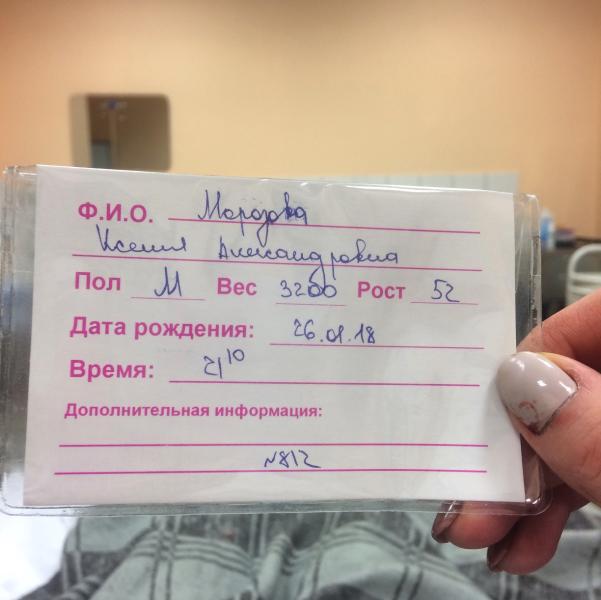 Ф.И.О. Морозова
Ксения Александровна
Пол М Вес 3200 Рост 52
Дата рождения: 26.01.18
Время: 21¹⁰
Дополнительная информация:
№812